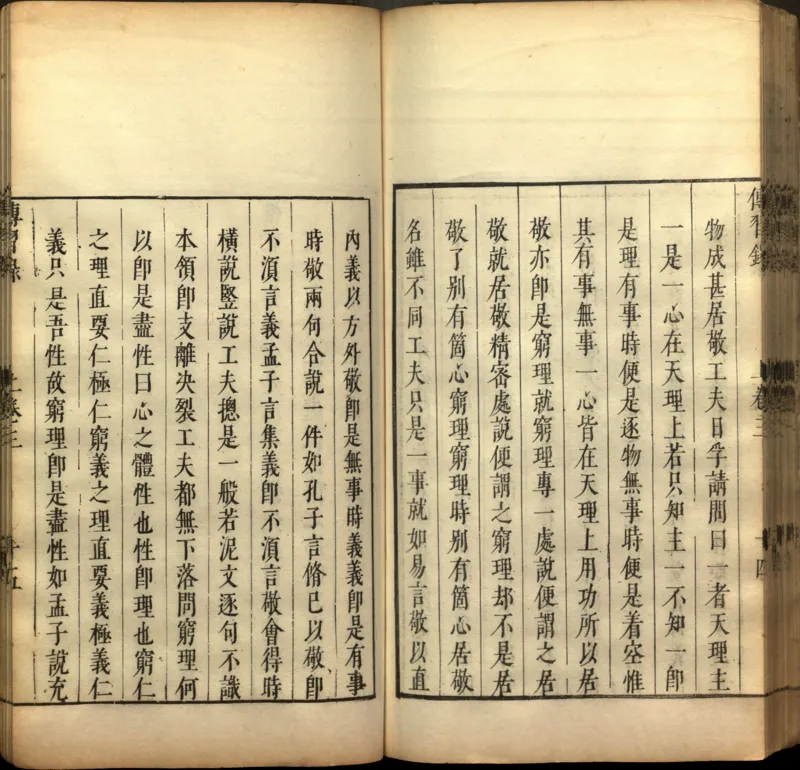 傳習錄 上卷三 十四
物成甚居敬工夫日孚請問曰一者天理主
一是一心在天理上若只知主一不知一卽
是理有事時便是逐物無事時便是着空惟
其有事無事一心皆在天理上用功所以居
敬亦卽是窮理就窮理專一處說便謂之居
敬就居敬精密處說便謂之窮理却不是居
敬了別有箇心窮理窮理時別有箇心居敬
名雖不同工夫只是一事就如易言敬以直
內義以方外敬卽是無事時義義卽是有事
時敬兩句合說一件如孔子言脩己以敬卽
不須言義孟子言集義卽不須言敬會得時
橫說竪說工夫摠是一般若泥文逐句不識
本領卽支離決裂工夫都無下落問窮理何
以卽是盡性曰心之體性也性卽理也窮仁
之理直要仁極仁窮義之理直要義極義仁
義只是吾性故窮理卽是盡性如孟子說充
傳習錄 上卷三 十五